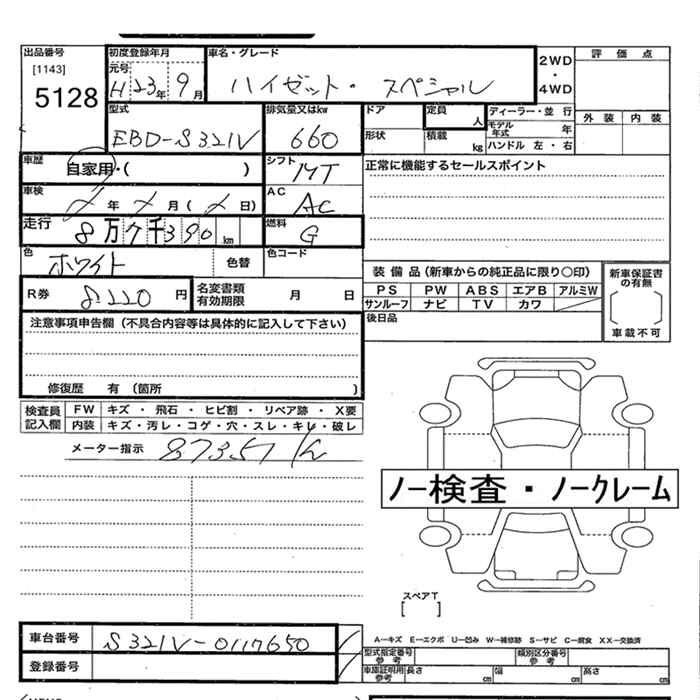 出品番号 初度登録年月 車名・グレード 2WD ・ 4WD 評価点
[1143] 元号
5128 H23年 9月 ハイゼット・ スペシャル 外装 内装
型式 排気量又はkw ドア 定員 人 ディーラー・並行
EBD-S321V 660 形状 積載 kg モデル年式 年
ハンドル 左・右
車歴 自家用・( ) シフト MT 正常に機能するセールスポイント
車検 年 月( 日) AC AC
走行 8万7千390km 燃料 G
色 ホワイト 色替 色コード
装備品(新車からの純正品に限り○印) 新車保証書の有無
R券 8220円 名変書類有効期限 月 日 PS PW ABS エアB アルミW
サンルーフ ナビ TV カワ 車載不可
注意事項申告欄(不具合内容等は具体的に記入して下さい) 後日品
修復歴 有(箇所 )
検査員記入欄 FW キズ・飛石・ヒビ割・リペア跡・X要
内装 キズ・汚レ・コゲ・穴・スレ・キレ・破レ
メーター指示 87351 K
ノー検査・ノークレーム
スペアT
[ ]
車台番号 S321V-0117650 A-キズ E-エクボ U-凹み W-補修跡 S-サビ C-腐食 XX-交換済
登録番号 型式指定番号 参考 類別区分番号 参考
車庫証明用 参考 長さ cm 幅 cm 高さ cm